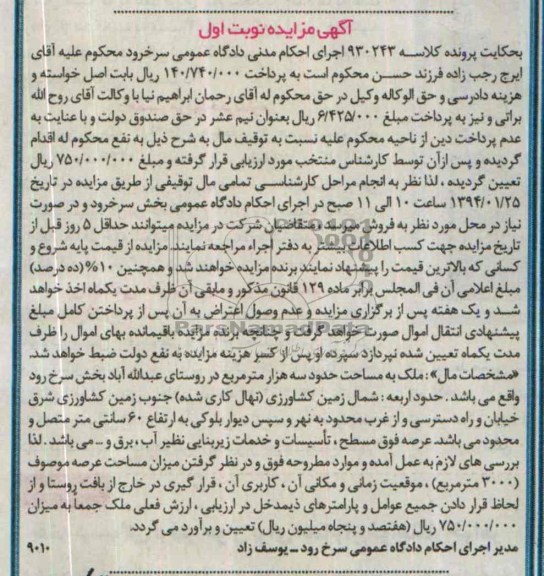 آگهی مزایده نوبت اول
بحکایت پرونده کلاسه ۹۳۰۲۴۳ اجرای احکام مدنی دادگاه عمومی سرخرود محکوم علیه آقای
ایرج رجب زاده فرزند حسن محکوم است به پرداخت ۱۴۰/۷۴۰/۰۰۰ ریال بابت اصل خواسته و
هزینه دادرسی و حق الوکاله وکیل در حق محکوم له آقای رحمان ابراهیم نیا با وکالت آقای روح الله
براتی و نیز به پرداخت مبلغ ۶/۴۲۵/۰۰۰ ریال بعنوان نیم عشر در حق صندوق دولت و با عنایت به
عدم پرداخت دین از ناحیه محکوم علیه نسبت به توقیف مال به شرح ذیل به نفع محکوم له اقدام
گردیده و پس ازآن توسط کارشناس منتخب مورد ارزیابی قرار گرفته و مبلغ ۷۵۰/۰۰۰/۰۰۰ ریال
تعیین گردیده ، لذا نظر به انجام مراحل کارشناسی تمامی مال توقیفی از طریق مزایده در تاریخ
۱۳۹۴/۰۱/۲۵ ساعت ۱۰ الی ۱۱ صبح در اجرای احکام دادگاه عمومی بخش سرخرود و در صورت
نیاز در محل مورد نظر به فروش میرسد ، متقاضیان شرکت در مزایده میتوانند حداقل ۵ روز قبل از
تاریخ مزایده جهت کسب اطلاعات بیشتر به دفتر اجراء مراجعه نمایند. مزایده از قیمت پایه شروع و
کسانی که بالاترین قیمت را پیشنهاد نمایند برنده مزایده خواهند شد و همچنین ۱۰% (ده درصد)
مبلغ اعلامی آن فی المجلس برابر ماده ۱۲۹ قانون مذکور و مابقی آن ظرف مدت یکماه اخذ خواهد
شد و یک هفته پس از برگزاری مزایده و عدم وصول اعتراض به آن پس از پرداختن کامل مبلغ
پیشنهادی انتقال اموال صورت خواهد گرفت و چنانچه برنده مزایده باقیمانده بهای اموال را ظرف
مدت یکماه تعیین شده نپردازد سپرده او پس از کسر هزینه مزایده به نفع دولت ضبط خواهد شد.
«مشخصات مال» : ملک به مساحت حدود سه هزار مترمربع در روستای عبدالله آباد بخش سرخ رود
واقع می باشد . حدود اربعه : شمال زمین کشاورزی (نهال کاری شده) جنوب زمین کشاورزی شرق
خیابان و راه دسترسی و از غرب محدود به نهر و سپس دیوار بلوکی به ارتفاع ۶۰ سانتی متر متصل و
محدود می باشد. عرصه فوق مسطح ، تأسیسات و خدمات زیربنایی نظیر آب ، برق و ... می باشد . لذا
بررسی های لازم به عمل آمده و موارد مطروحه فوق و در نظر گرفتن میزان مساحت عرصه موصوف
(۳۰۰۰ مترمربع) ، موقعیت زمانی و مکانی آن ، کاربری آن ، قرار گیری در خارج از بافت روستا و از
لحاظ قرار دادن جمیع عوامل و پارامترهای ذیمدخل در ارزیابی ، ارزش فعلی ملک جمعاً به میزان
۷۵۰/۰۰۰/۰۰۰ ریال (هفتصد و پنجاه میلیون ریال) تعیین و برآورد می گردد.
مدیر اجرای احکام دادگاه عمومی سرخ رود ــ یوسف زاد ۹۰۱۰